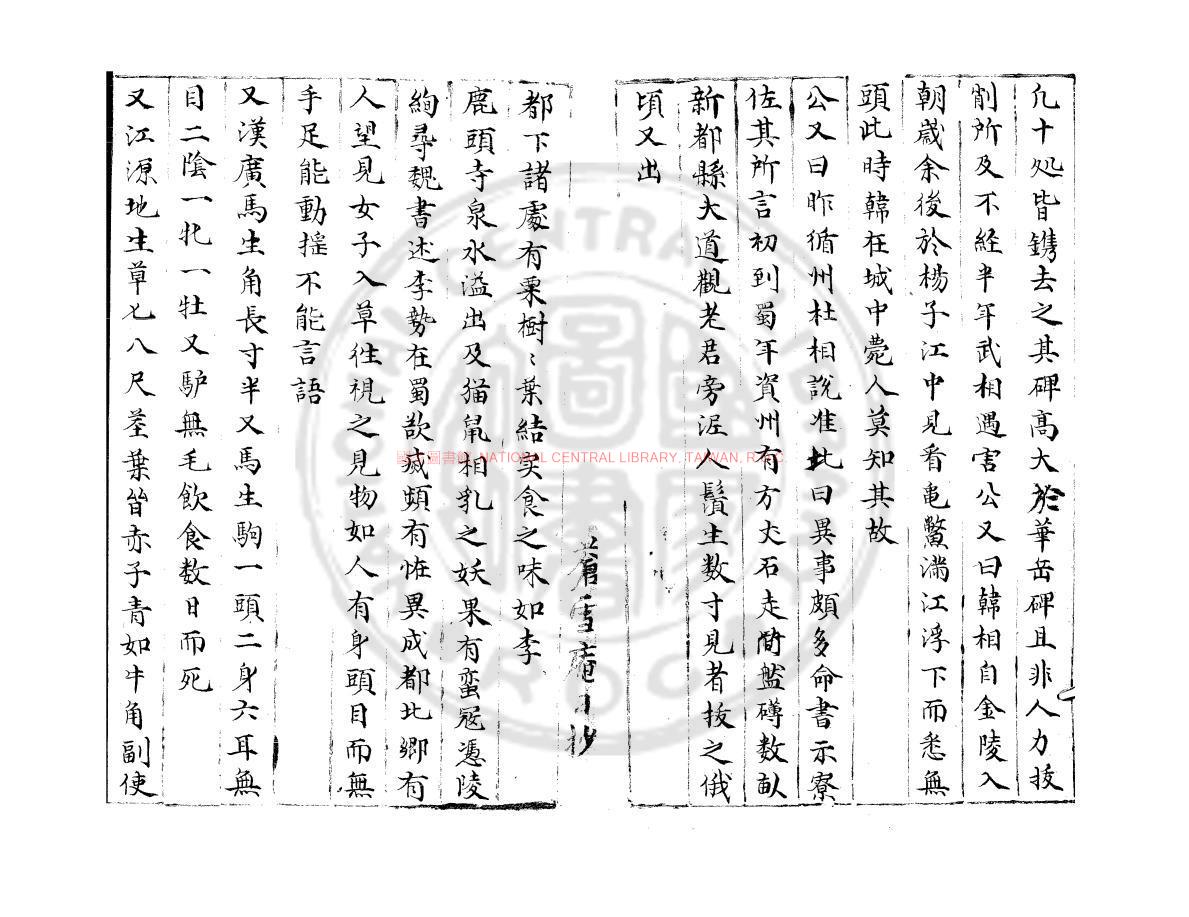 凢十処皆鐫去之其碑高大於華岳碑且非人力拔
削所及不經半年武相遇害公又曰韓相自金陵入
朝歲余後於楊子江中見有亀鱉滿江浮下而悉無
頭此時韓在城中薨人莫知其故
公又曰昨循州杜相說淮北曰異事頗多命書示寮
佐其所言初到蜀年資州有方丈石走閒盤礴数畝
新都縣大道觀老君旁泥人鬚生数寸見者拔之俄
頃又出
蒼雪庵日抄
都下諸處有栗樹〻葉結实食之味如李
鹿頭寺泉水溢出及猫鼠相乳之妖果有蛮冦憑陵
絢尋魏書述李勢在蜀欲滅頻有恠異成都北郷有
人望見女子入草徃視之見物如人有身頭目而無
手足能動揺不能言語
又漢廣馬生角長寸半又馬生駒一頭二身六耳無
目二隂一牝一牡又馿無毛飲食数日而死
又江源地生草七八尺莖葉皆赤子青如牛角副使
國家圖書館 NATIONAL CENTRAL LIBRARY, TAIWAN, R.O.C.